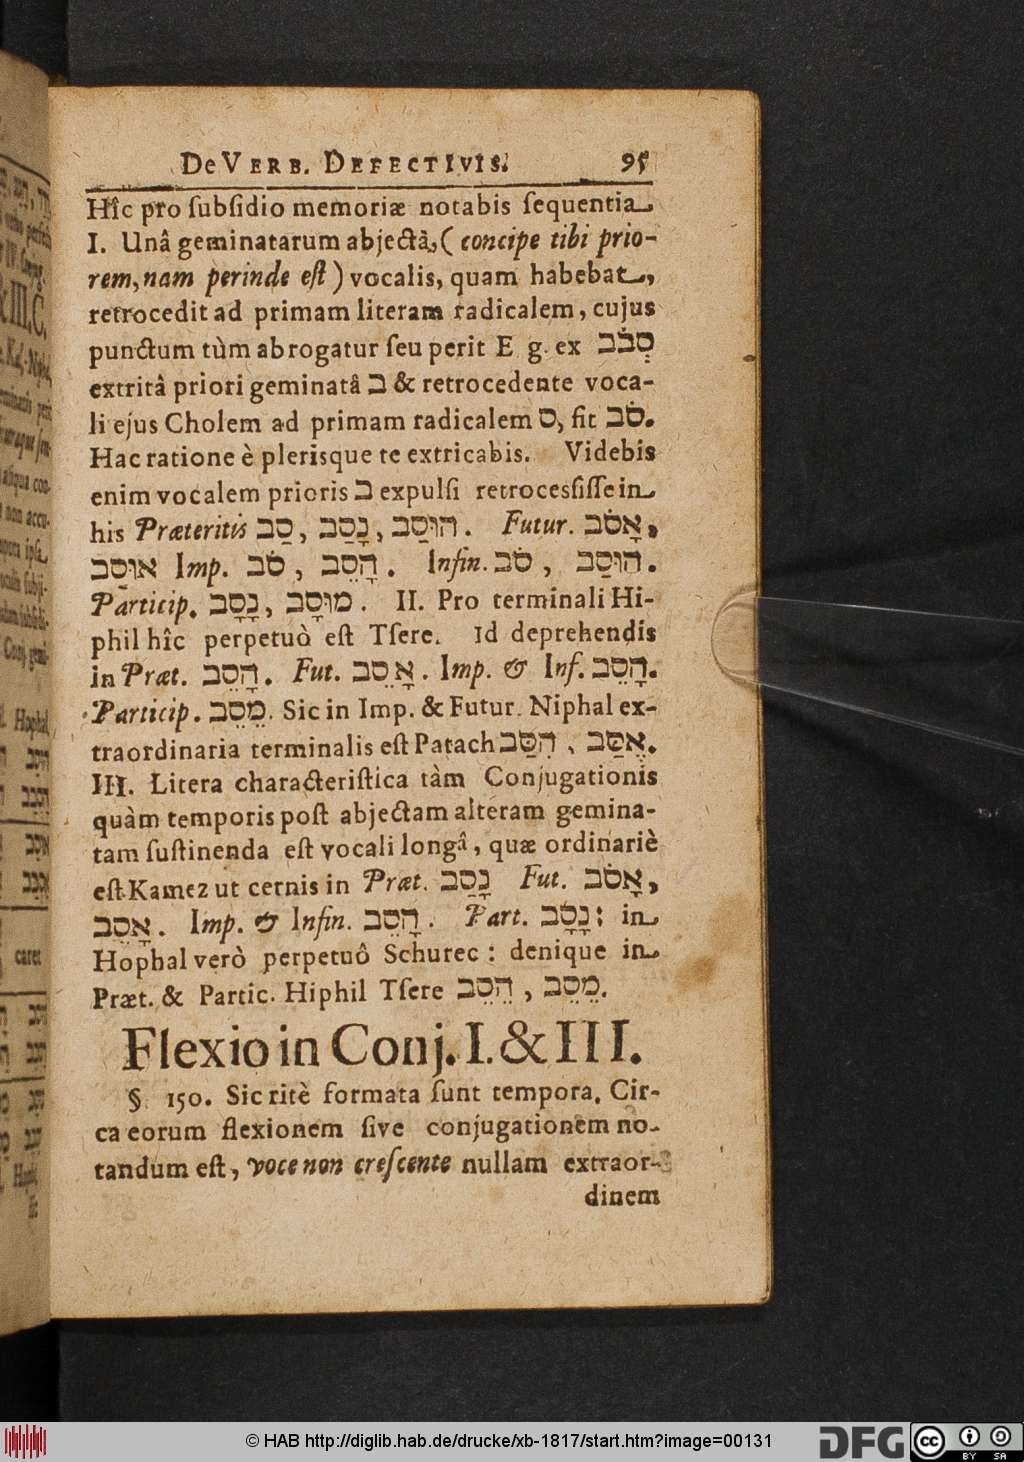 De VERB. DEFECTIVIS. 95
Hîc pro ſubſidio memoriæ notabis ſequentia
I. Unâ geminatarum abjectâ, ( concipe tibi prio-
rem, nam perinde eſt ) vocalis, quam habebat,
retrocedit ad primam literam radicalem, cujus
punctum tùm abrogatur ſeu perit E g. ex סְבֹב
extritâ priori geminatâ ב & retrocedente voca-
li ejus Cholem ad primam radicalem ס, fit סֹב.
Hac ratione è plerisque te extricabis. Videbis
enim vocalem prioris ב expulſi retroceſſiſſe in
his Præteritis סַב, נָסַב, הוּסַב. Futur. אָסֹב,
אוּסַב Imp. סֹב, הָסֵב. Infin. סֹב, הוּסַב.
Particip. נָסָב, מוּסָב. II. Pro terminali Hi-
phil hîc perpetuò eſt Tſere. Id deprehendis
in Præt. הָסֵב. Fut. אָסֵב. Imp. & Inf. הָסֵב.
Particip. מֵסֵב. Sic in Imp. & Futur. Niphal ex-
traordinaria terminalis eſt Patach הִסַּב, אֶסַּב.
III. Litera characteriſtica tàm Conjugationis
quàm temporis poſt abjectam alteram gemina-
tam ſuſtinenda eſt vocali longâ, quæ ordinariè
eſt Kamez ut cernis in Præt. נָסַב Fut. אָסֹב,
אָסֵב. Imp. & Infin. הָסֵב. Part. נָסָב; in
Hophal verò perpetuô Schurec : denique in
Præt. & Partic. Hiphil Tſere הֵסֵב, מֵסֵב.
Flexio in Conj. I. & III.
§ 150. Sic ritè formata ſunt tempora. Cir-
ca eorum flexionem ſive conjugationem no-
tandum eſt, voce non creſcente nullam extraor-
dinem
© HAB http://diglib.hab.de/drucke/xb-1817/start.htm?image=00131
DFG
cc BY SA